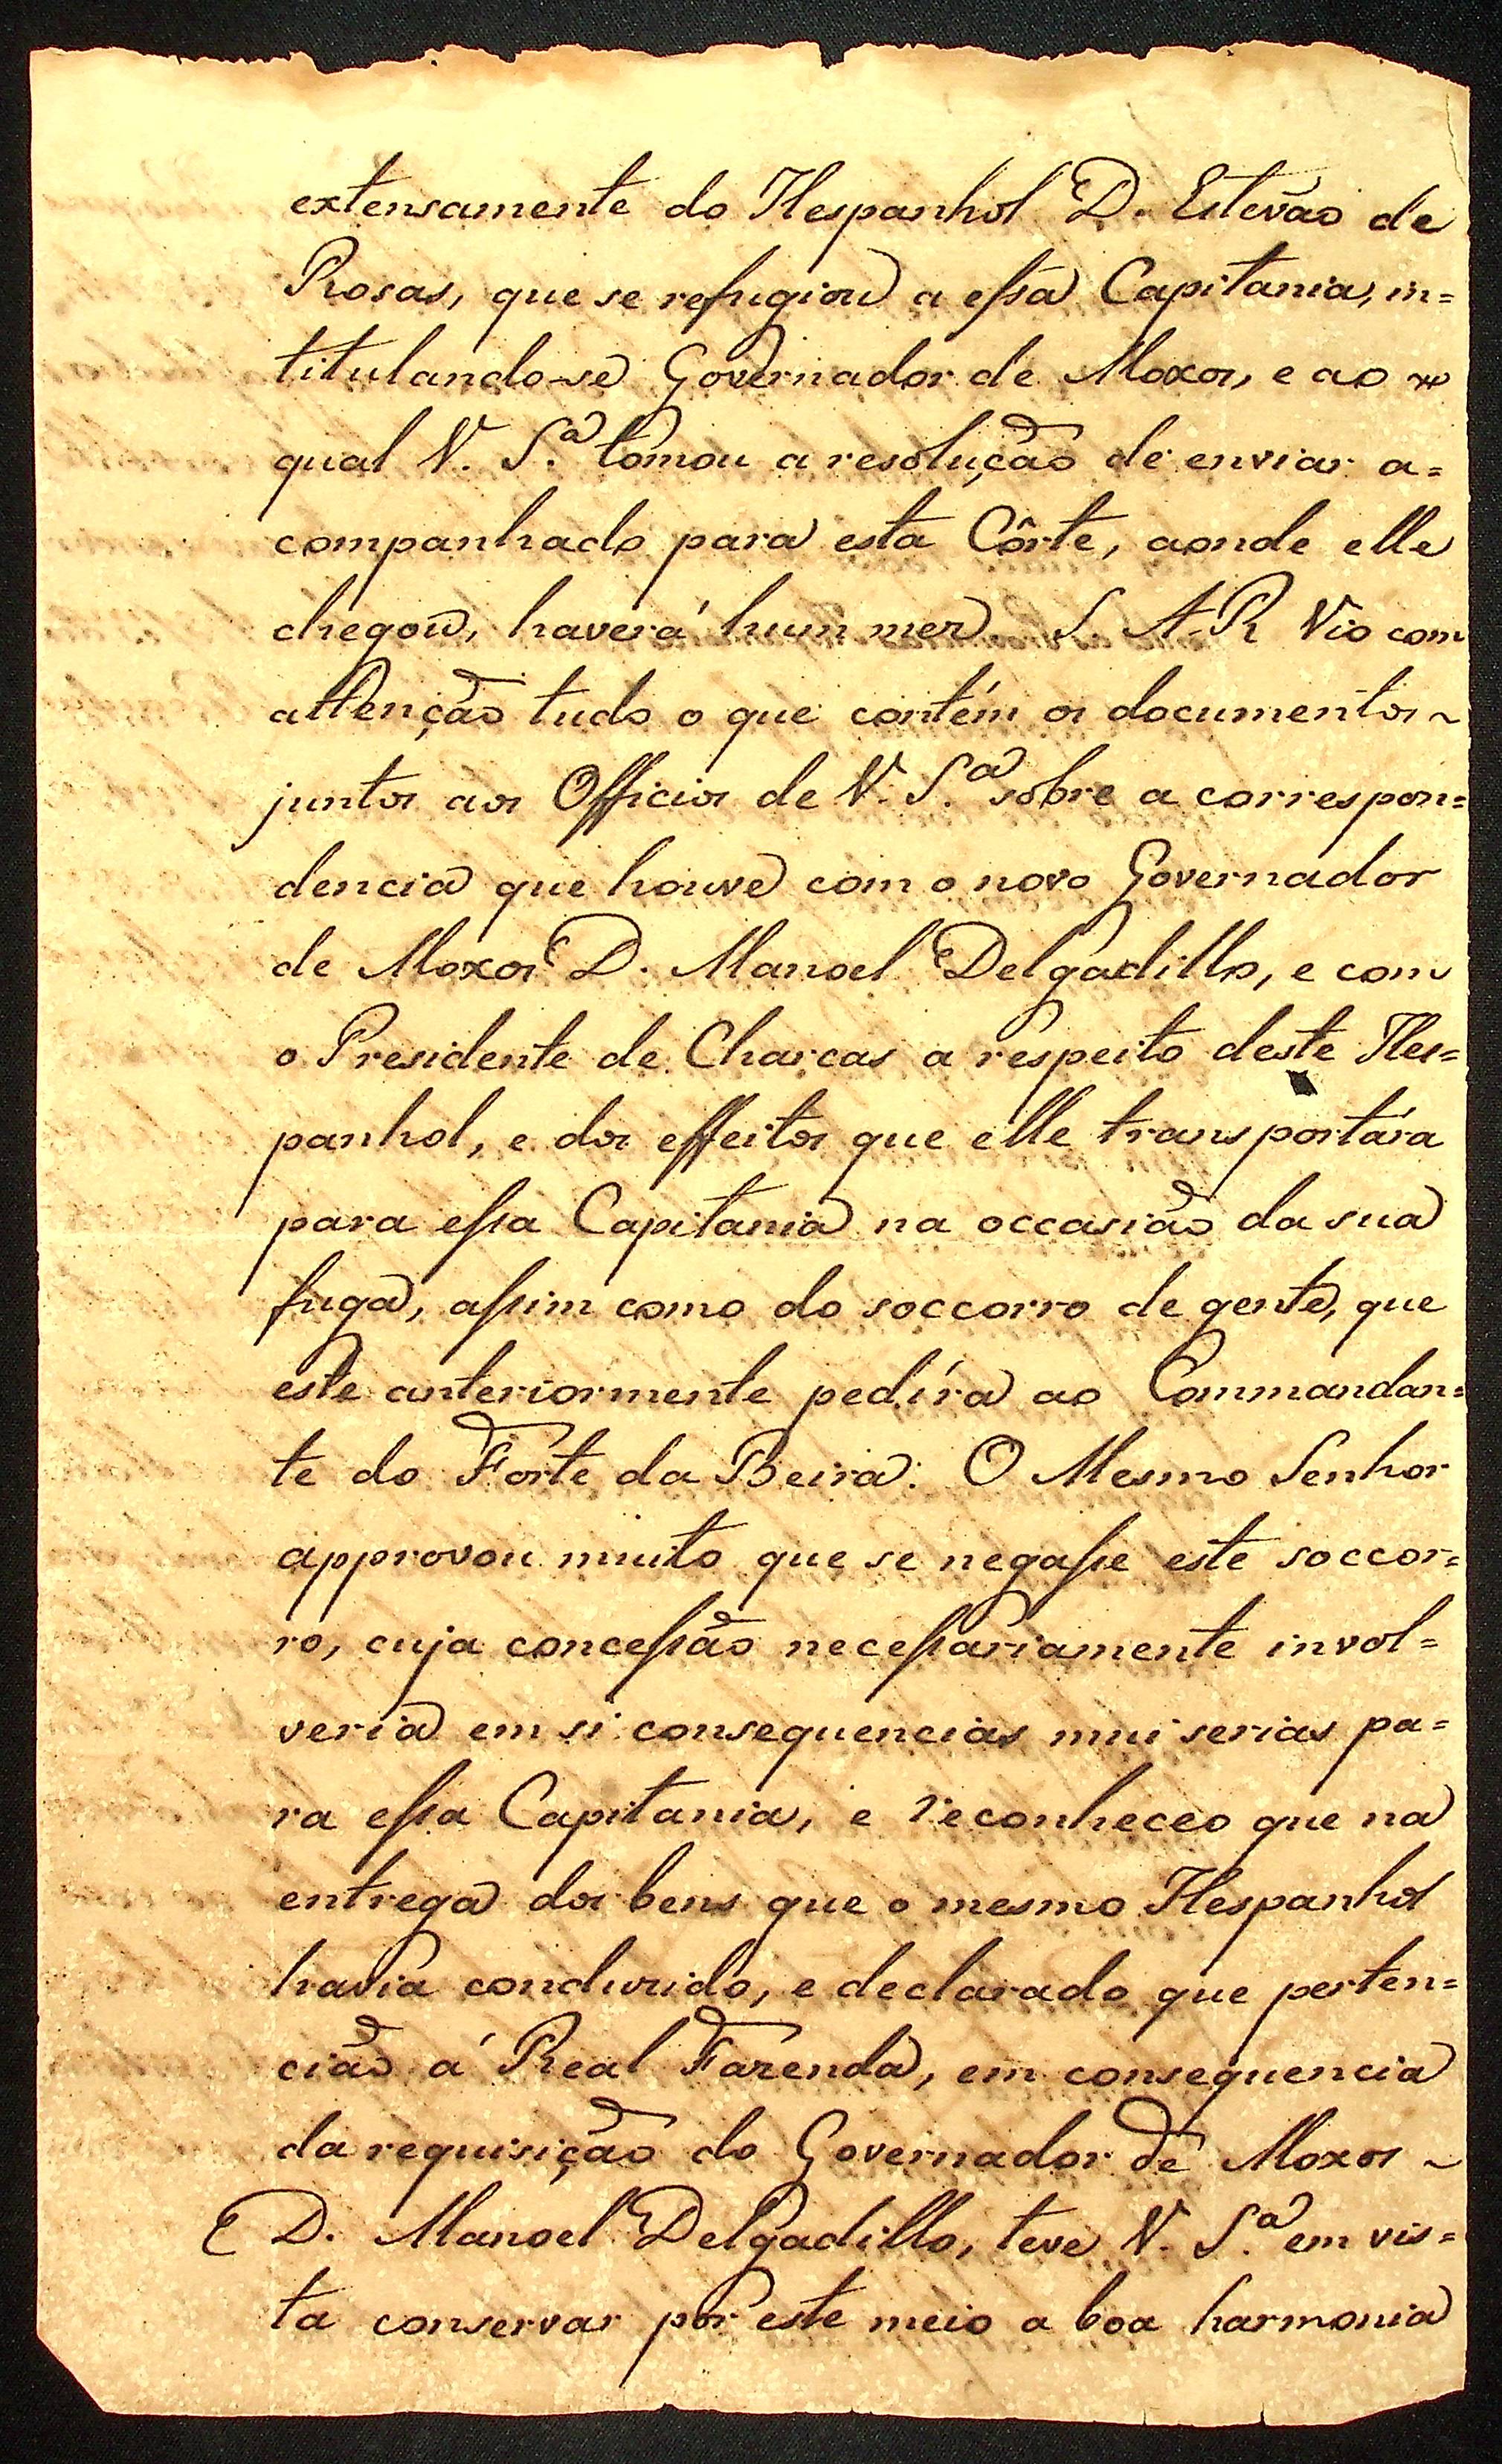 extensamente do Hespanhol D. Estevão de
Rosas, que se refugiou a essa Capitania, in=
titulando-se Governador de Moxos, e ao
qual V. S.ª tomou a resolução de enviar a=
companhado para esta Côrte, aonde elle
chegou, haverá hum mez. S. A. R. Vio com
attenção tudo o que contém os documentos ~
juntos aos Officios de V. S.ª sobre a correspon=
dencia que houve com o novo Governador
de Moxos D. Manoel Delgadillo, e com
o Presidente de Charcas a respeito deste Hes=
panhol, e dos effeitos que elle transportára
para essa Capitania na occasião da sua
fuga, assim como do soccorro de gente, que
este anteriormente pedíra ao Commandan=
te do Forte da Beira. O Mesmo Senhor
approvou muito que se negasse este soccor=
ro, cuja concessão necessariamente invol=
veria em si consequencias mui serias pa=
ra essa Capitania, e reconheceo que na
entrega dos bens que o mesmo Hespanhol
havia conduzido, e declarado que perten=
cião á Real Fazenda, em consequencia
da requisição do Governador de Moxos ~
D. Manoel Delgadillo, teve V. S.ª em vis=
ta conservar por este meio a boa harmonia